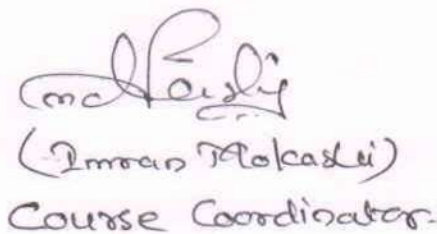 (Imran Mokashi)
Course Coordinator.